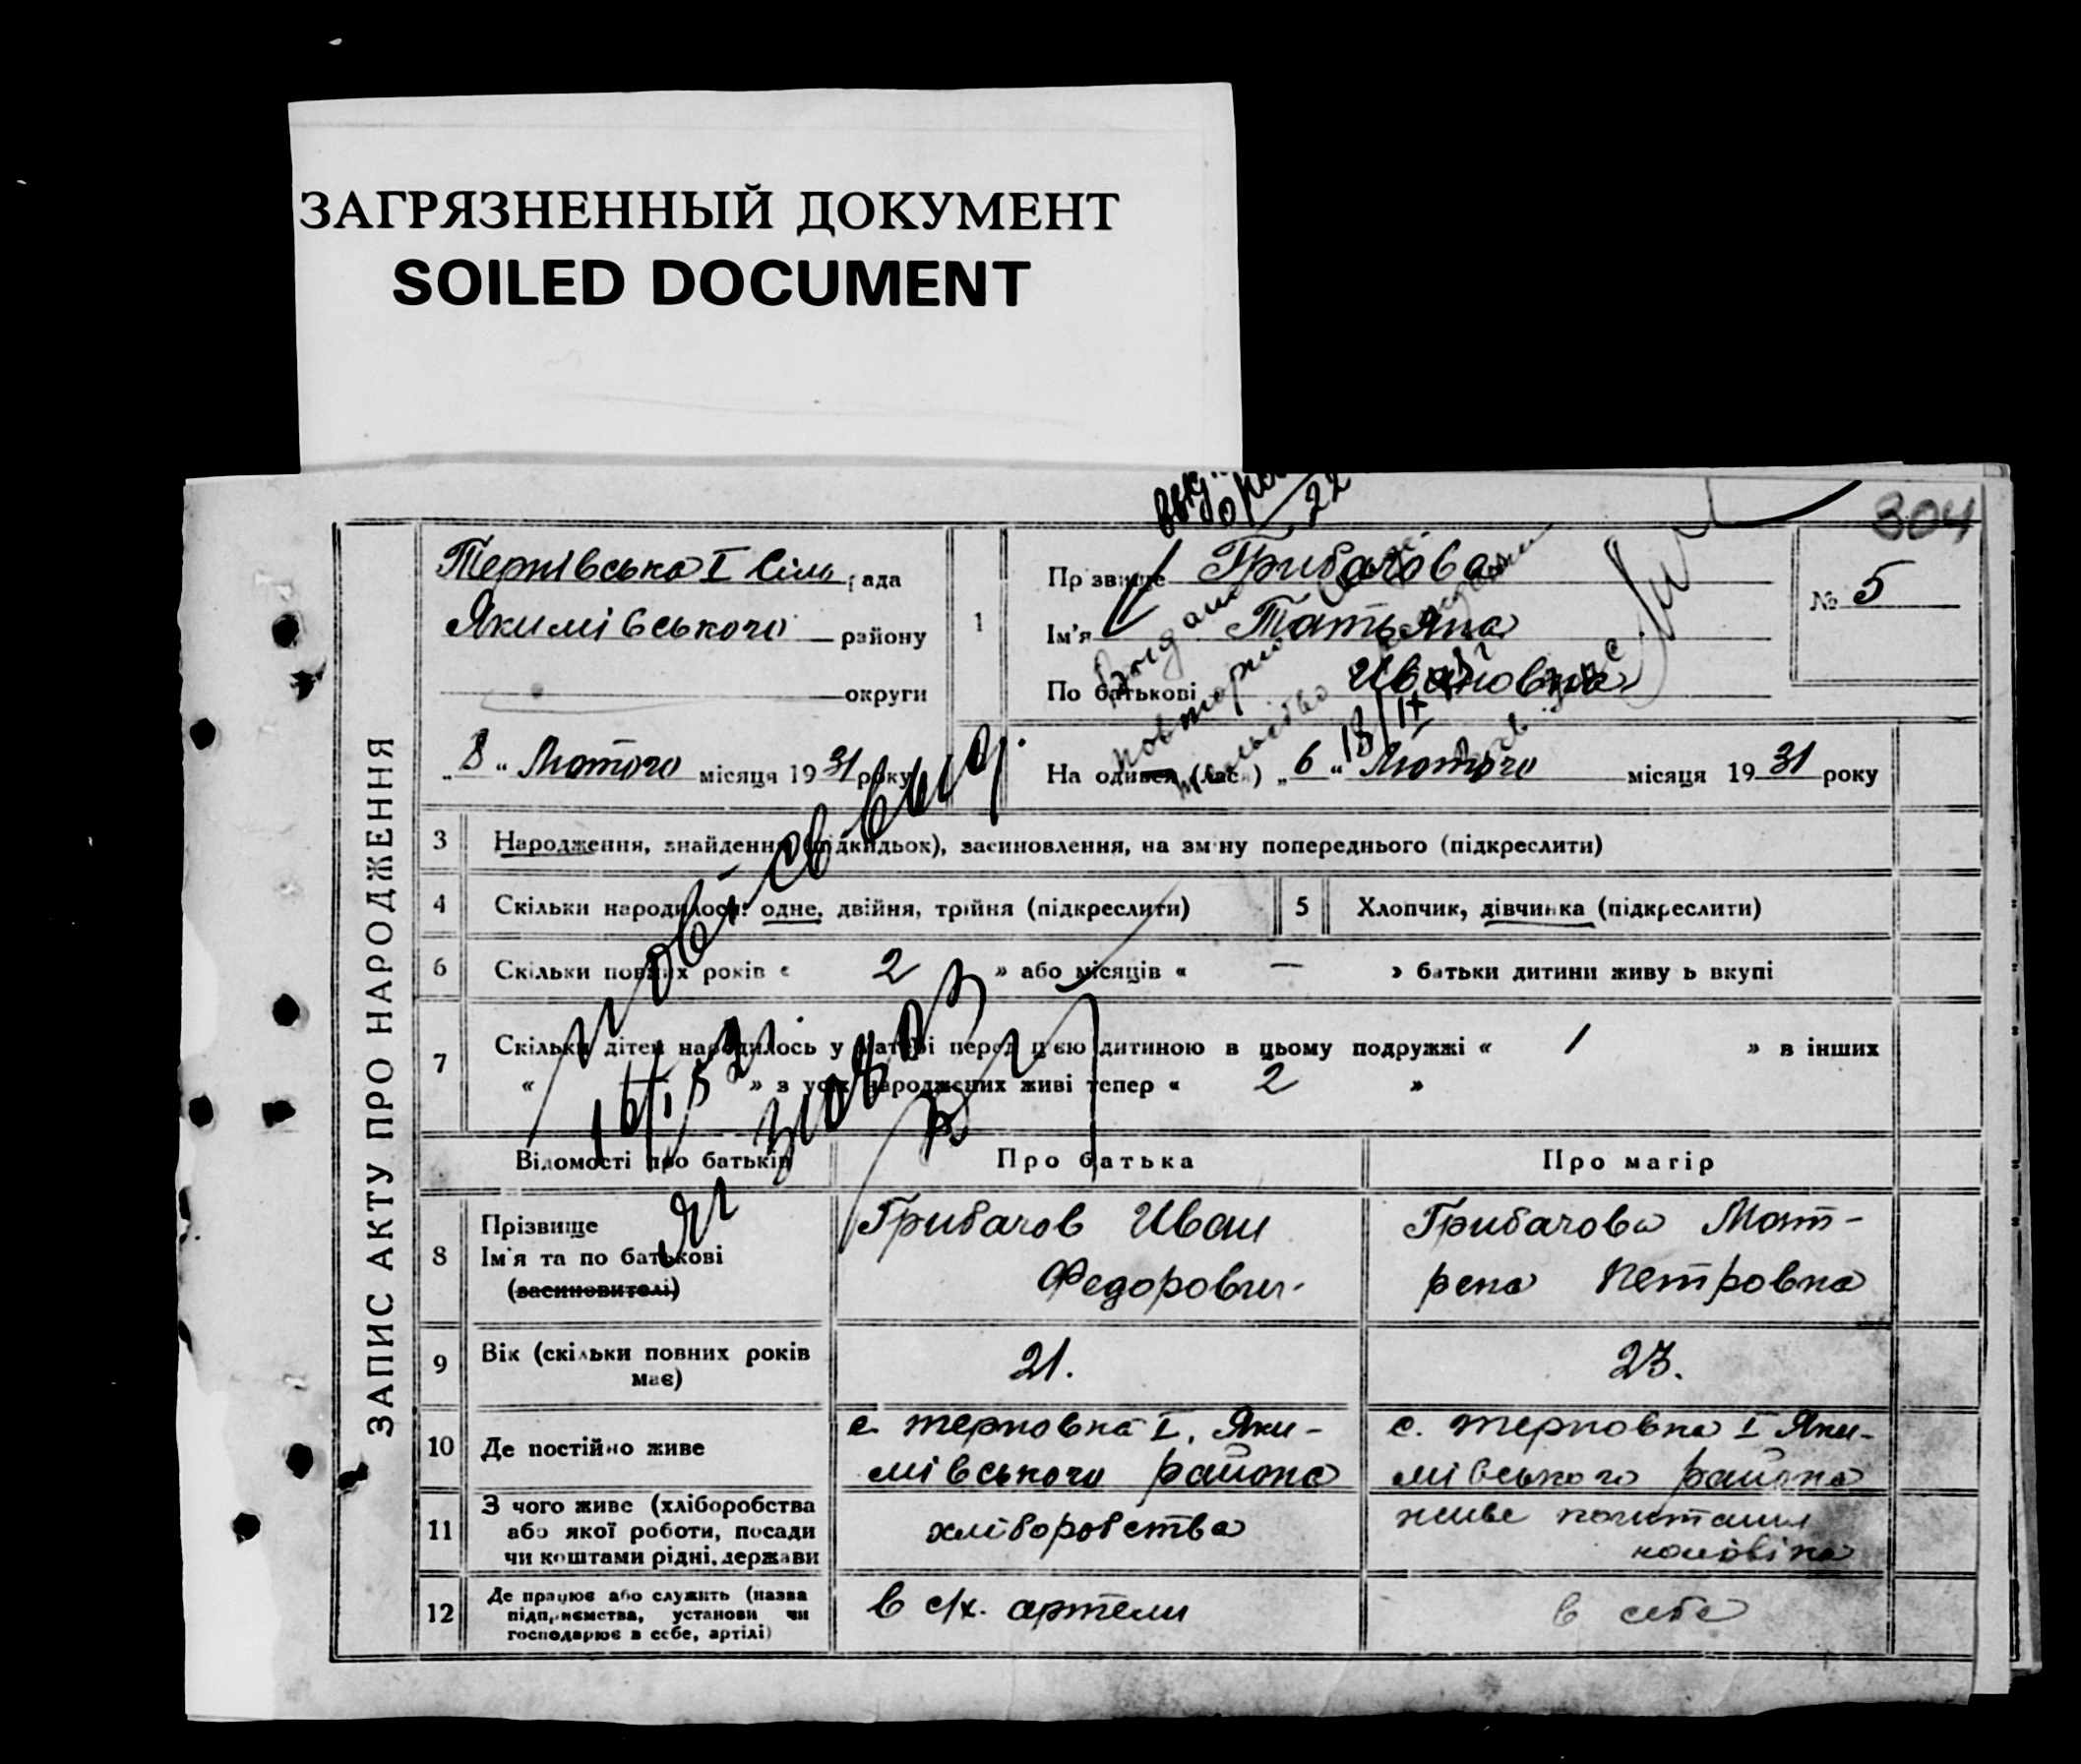 ЗАГРЯЗНЕННЫЙ ДОКУМЕНТ
SOILED DOCUMENT
304
ЗАПИС АКТУ ПРО НАРОДЖЕННЯ
Тернівська І Сіль рада
Якимівського району
округи
„8“ Лютого місяця 1931 року
1
Прізвище Грибачова
Ім'я Татьяна
По батькові Ивановна
№ 5
Народився (лась) „6“ Лютого місяця 1931 року
18/IX
3 Народження, знайдення (підкидьох), засиновлення, на зміну попереднього (підкреслити)
4 Скільки народилось: одне, двійня, трійня (підкреслити)
5 Хлопчик, дівчинка (підкреслити)
6 Скільки повних років « 2 » або місяців « — » батьки дитини живуть вкупі
7 Скільки дітей народилось у матері перед цією дитиною в цьому подружжі « 1 » в інших
« » з усіх народжених живі тепер « 2 »
Відомості про батьків
Про батька
Про матір
8 Прізвище
Ім'я та по батькові
(засиновителі)
Грибачов Иван
Федорович
Грибачова Мот-
рена Петровна
9 Вік (скільки повних років
має)
21.
23.
10 Де постійно живе
с. Терновка І, Яки-
мівського района
с. Терновка І Яки-
мівського района
11 З чого живе (хліборобства
або якої роботи, посади
чи коштами рідні, держави
хліборобства
живе коштами
чоловіка
12 Де працює або служить (назва
підприємства, установи чи
господарює в себе, артілі)
в с/х. артели
в себе